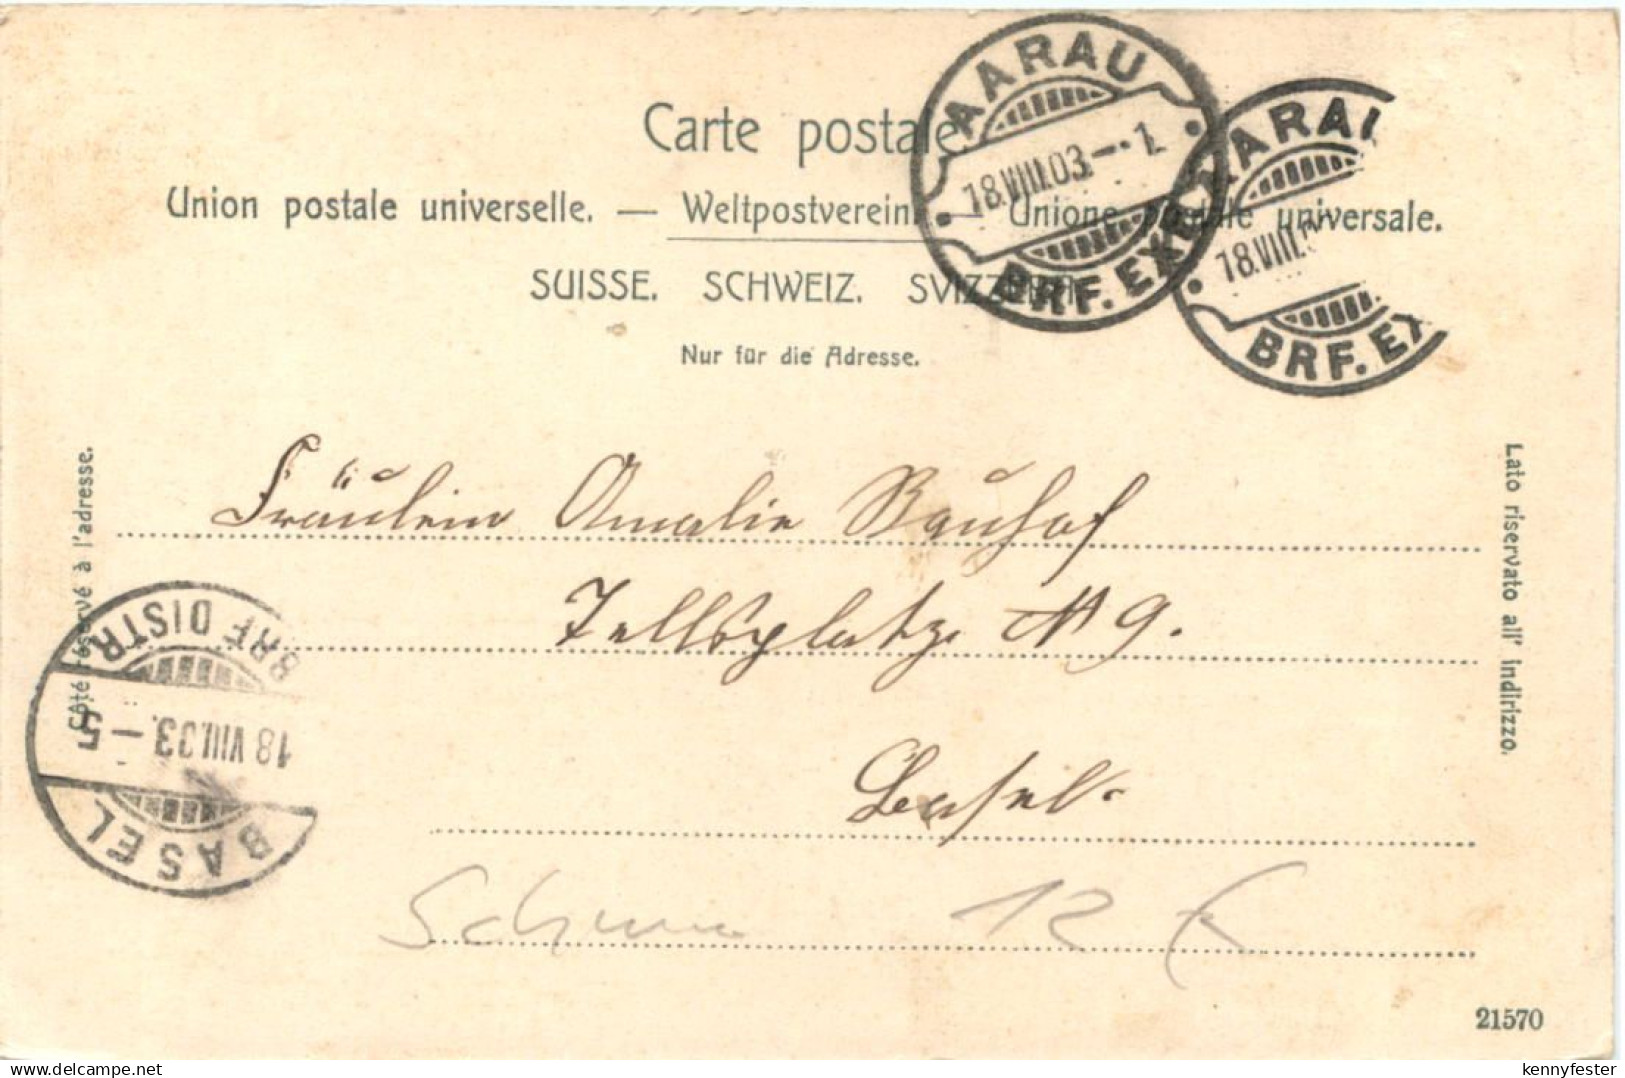 Carte postale.
Union postale universelle. — Weltpostverein. — Unione postale universale.
SUISSE. SCHWEIZ. SVIZZERA.
Nur für die Adresse.
AARAU
18.VIII.03.–·1.
BRF. EXP.
ARAU
18.VIII.0
BRF. EX
Côté réservé à l'adresse.
Lato riservato all' indirizzo.
Fräulein Amalie Bauhof
Tellsplatz N 9.
Basel.
BRF DISTR
18 VIII.03.–5
BASEL
12 €
21570
delcampe.net
kennyfester